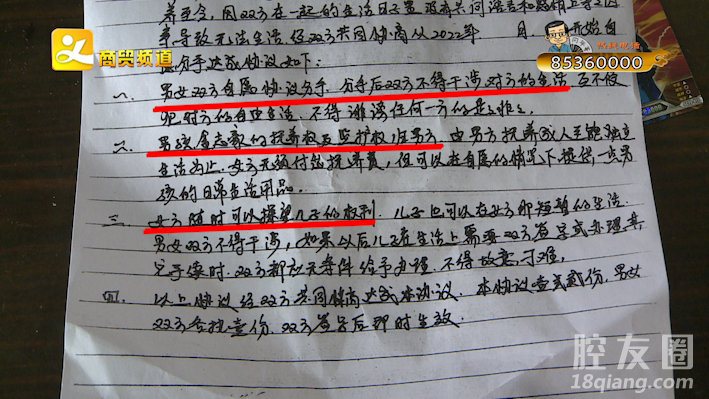 养至今，因双方在一起的生活日子里没有共同语言和感情上等因
导致无法生活 经双方共同协商从2022年 月 开始自
分手达成协议如下：
一、男女双方自愿协议分手，分手后双方不得干涉对方的生活 互不侵
犯对方的自由生活，不得诽谤任何一方的是是非非
二、男孩 的抚养权及监护权归男方 由男方抚养成人至能独立
生活为止，女方无须付出抚养费，但可以在自愿的情况下提供一点男
孩的日常生活用品。
三 女方随时可以探望儿子的权利，儿子也可以在女方那短暂的生活
男女双方不得干涉，如果以后儿子在生活上需要双方签字或办理其
它手续时，双方都应无条件给予办理，不得故意刁难，
四、以上协议经双方共同协商达成本协议，本协议壹式贰份，男女
双方各执壹份，双方签字后即时生效．
商贸频道
热线电话
85360000
腔友圈
18qiang.com